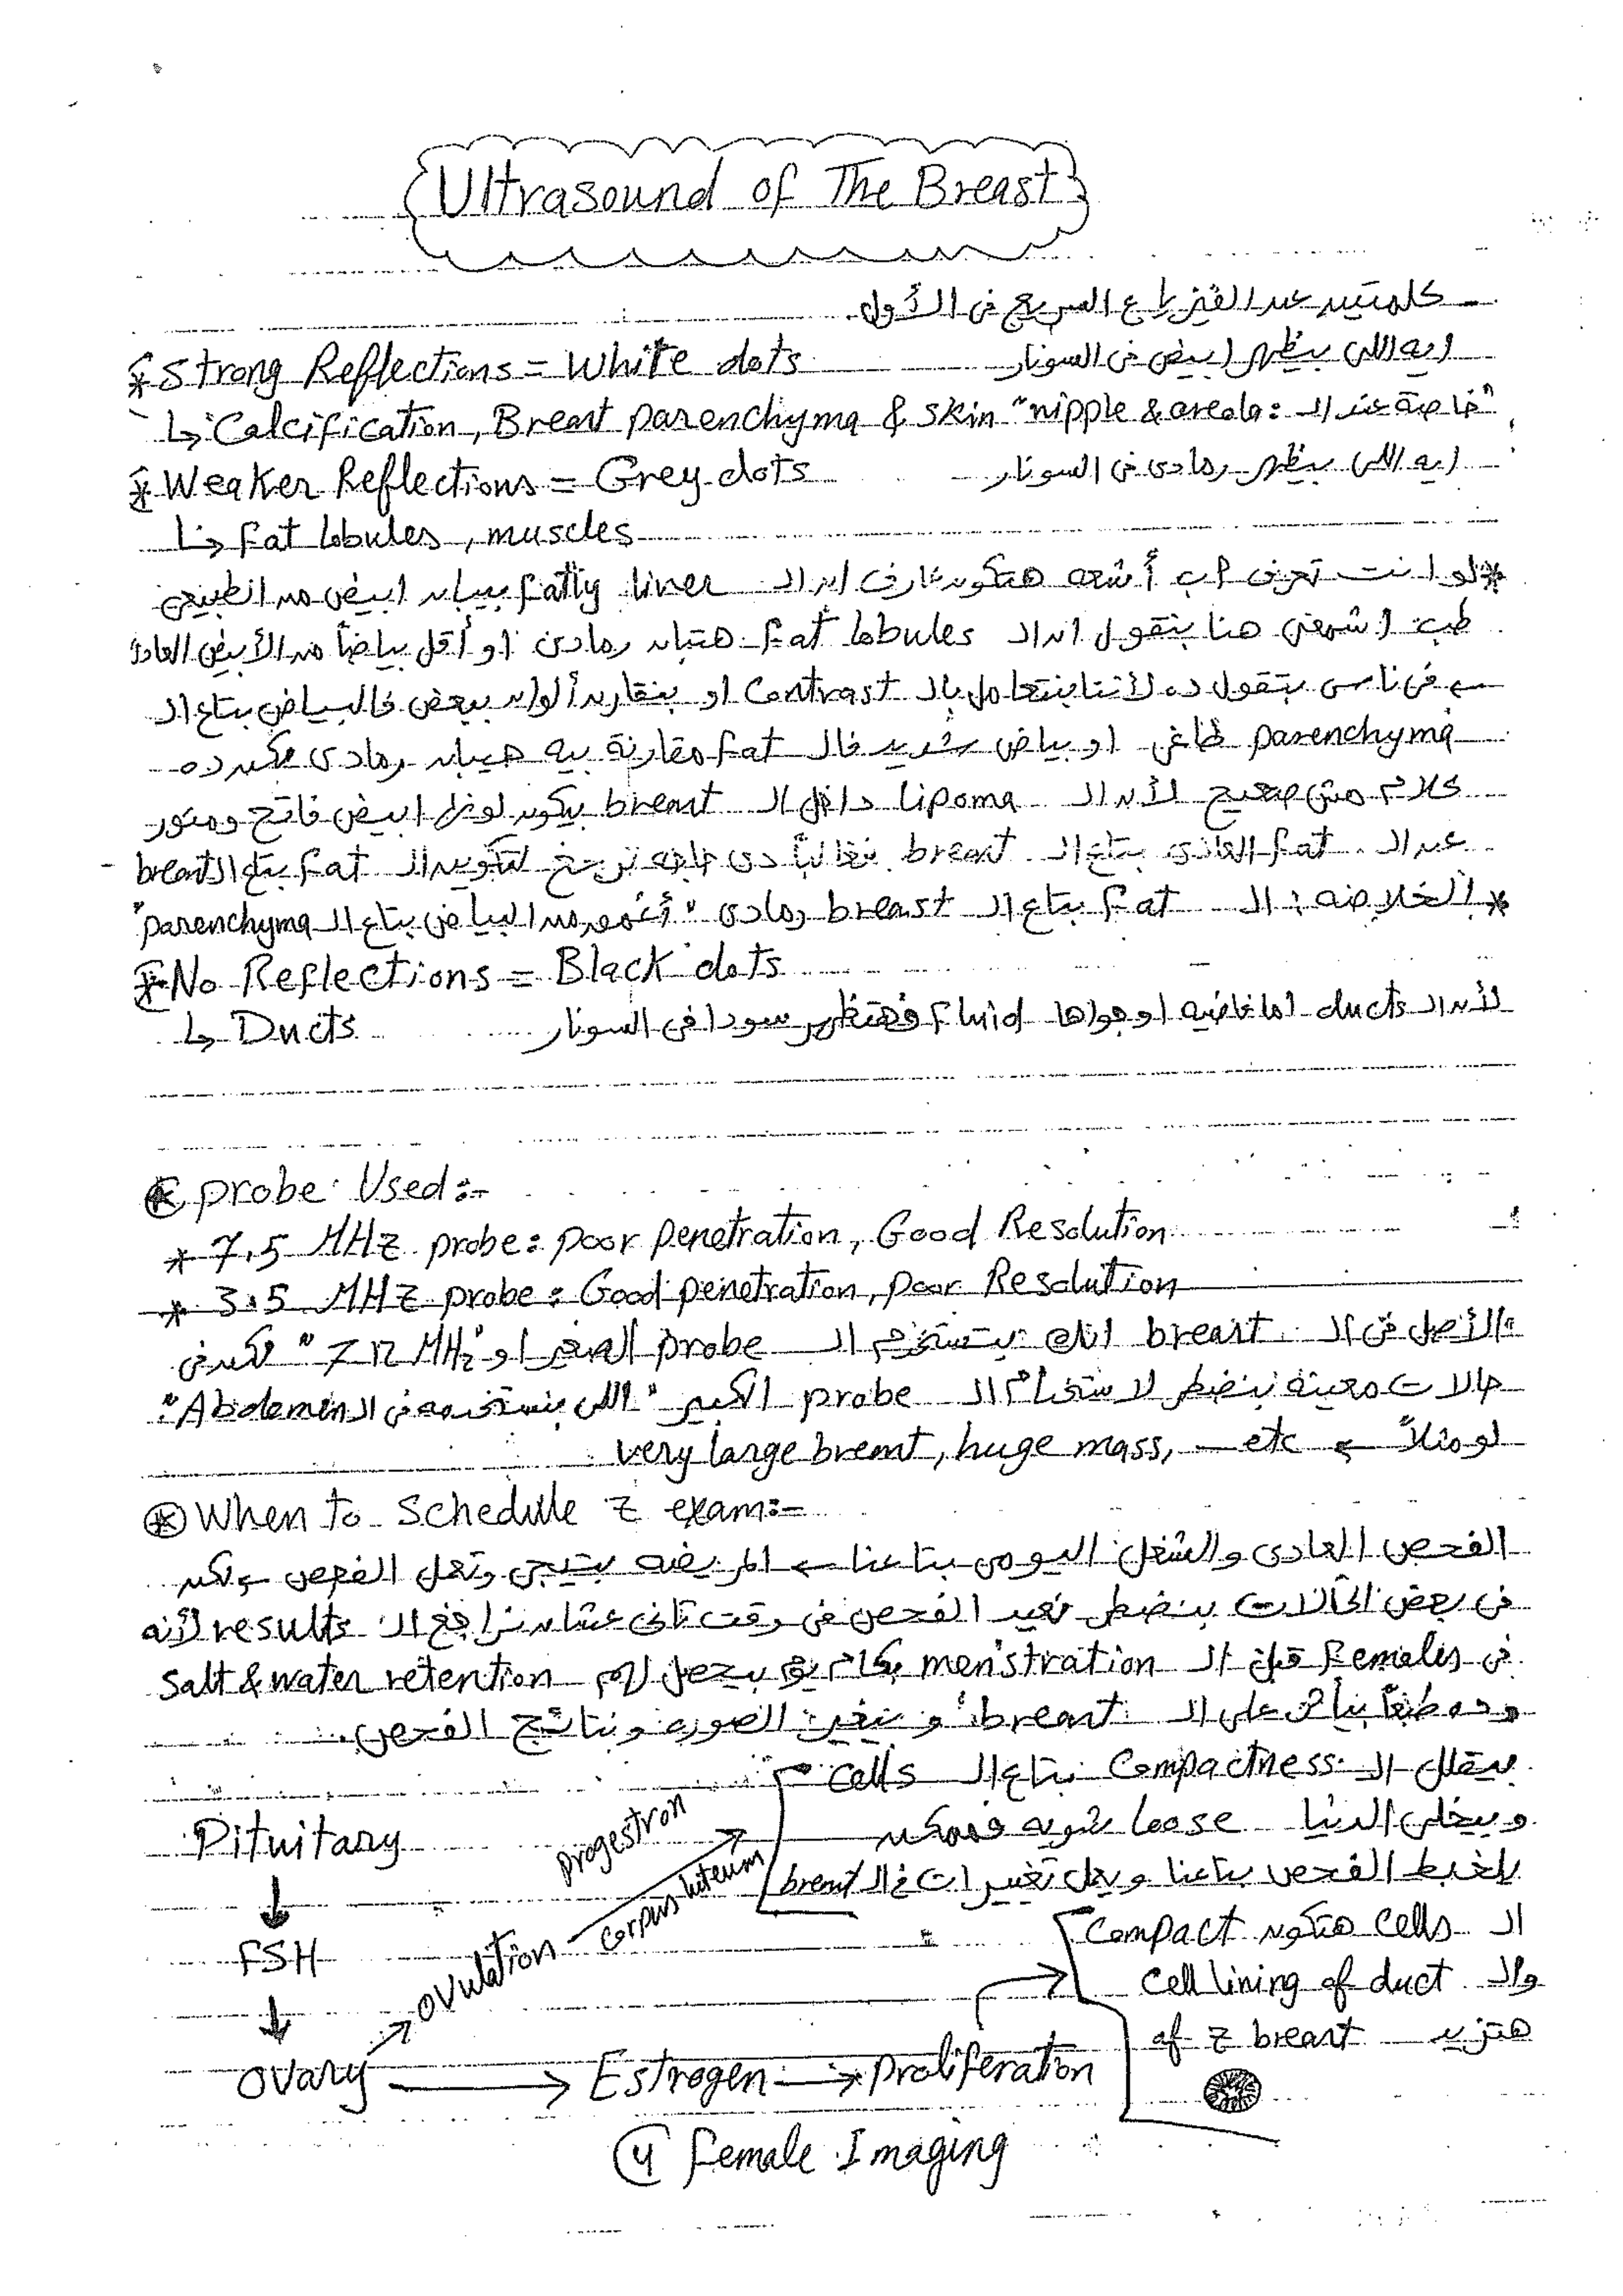 Ultrasound of The Breast
- كلمتين عن الفيزياء السريع فى الأول.
* Strong Reflections = White dots ايه اللى بيظهر ابيض فى السونار
↳ Calcification, Breast parenchyma & skin "nipple & areola : خاصة عند الـ"
* Weaker Reflections = Grey dots ايه اللى بيظهر رمادى فى السونار
↳ Fat lobules, muscles
* لو انت تعرف أشعه هتكون عارف ان الـ Fatty liver بيبان ابيض من الطبيعى
طب اشمعنى هنا بنقول ان الـ Fat lobules هتبان رمادى او أقل بياضاً من الأبيض العادى
← فى ناس بتقول ده لأننا بنتعامل بالـ Contrast او بنقارن ألوان ببعض فالبياض بتاع الـ
parenchyma طاغى او بياض شديد فالـ Fat مقارنة بيه هيبان رمادى لكن ده
كلام مش صحيح لأن الـ Lipoma داخل الـ breast بيكون لونها ابيض فاتح ومنور
عن الـ Fat العادى بتاع الـ breast فغالباً دى حاجه ترجع لتكوين الـ Fat بتاع الـ breast
* الخلاصه : الـ Fat بتاع الـ breast رمادى "أغمق من البياض بتاع الـ parenchyma"
* No Reflections = Black dots
↳ Ducts لأن الـ ducts اما فاضيه او جواها Fluid فهتظهر سودا فى السونار
* probe Used :-
* 7.5 MHz probe : poor penetration, Good Resolution
* 3.5 MHz probe : Good penetration, poor Resolution
الأصل فى الـ breast انك بتستخدم الـ probe الصغير او "7 12 MHz" لكن فى
حالات معينه بنضطر لاستخدام الـ probe الكبير "اللى بنستخدمه فى الـ Abdomen"
لو مثلاً ← very large breast, huge mass, — etc
* When to Schedule z exam :-
الفحص العادى والشغل اليومى بتاعنا ← المريضه بتيجى وتعمل الفحص ← لكن
فى بعض الحالات بنضطر نعيد الفحص فى وقت تانى عشان نراجع الـ results لأنه
فى Females قبل الـ menstration بكام يوم بيحصل لهم salt & water retention
وده طبعاً بيأثر على الـ breast و بيغير الصوره ونتائج الفحص.
بيقلل الـ Compactness بتاع الـ cells
وبيخلى الدنيا loose شويه فممكن
يلخبط الفحص بتاعنا ويعمل تغييرات فى الـ breast
Pituitary
↓
FSH
↓
Ovary
↗ Ovulation → progestron
Corpus luteum
→ Estrogen → proliferation
الـ cells هتكون Compact
والـ cell lining of duct
of z breast هتزيد
4 Female Imaging